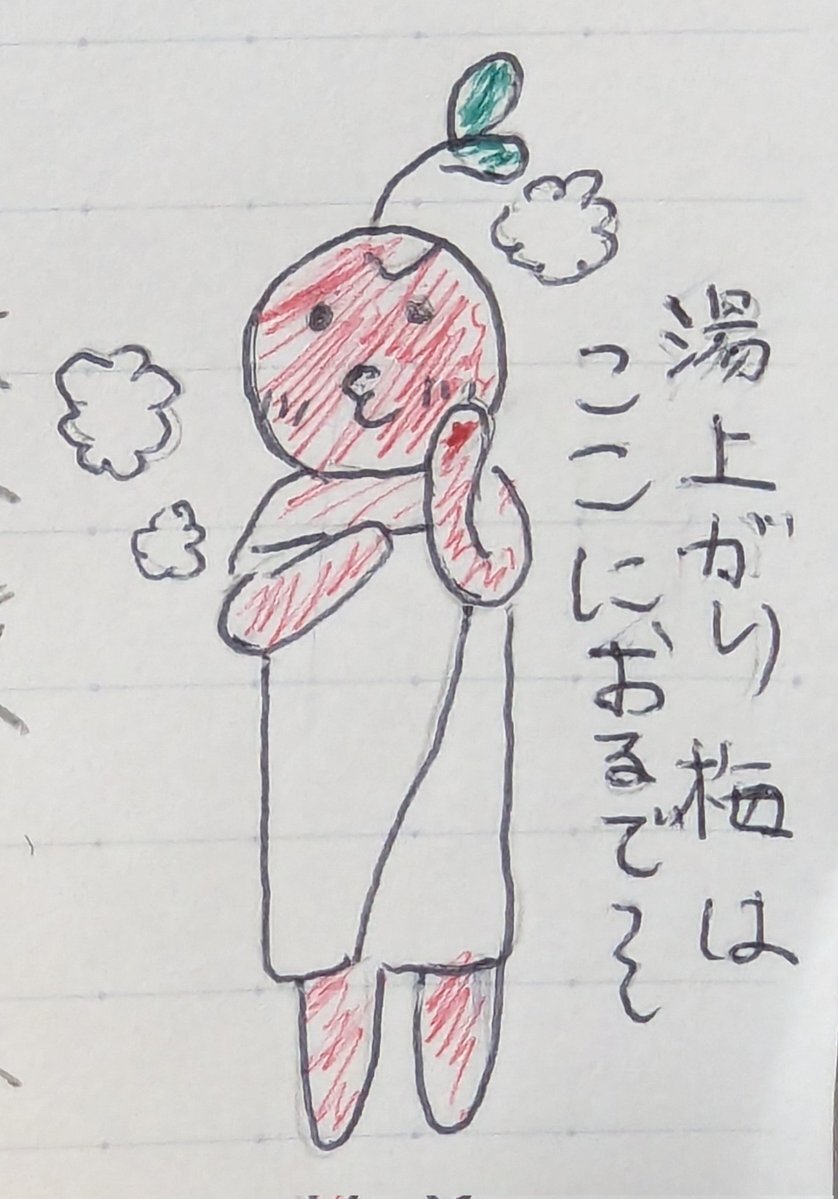 湯上がり梅は
ここにおるでそ